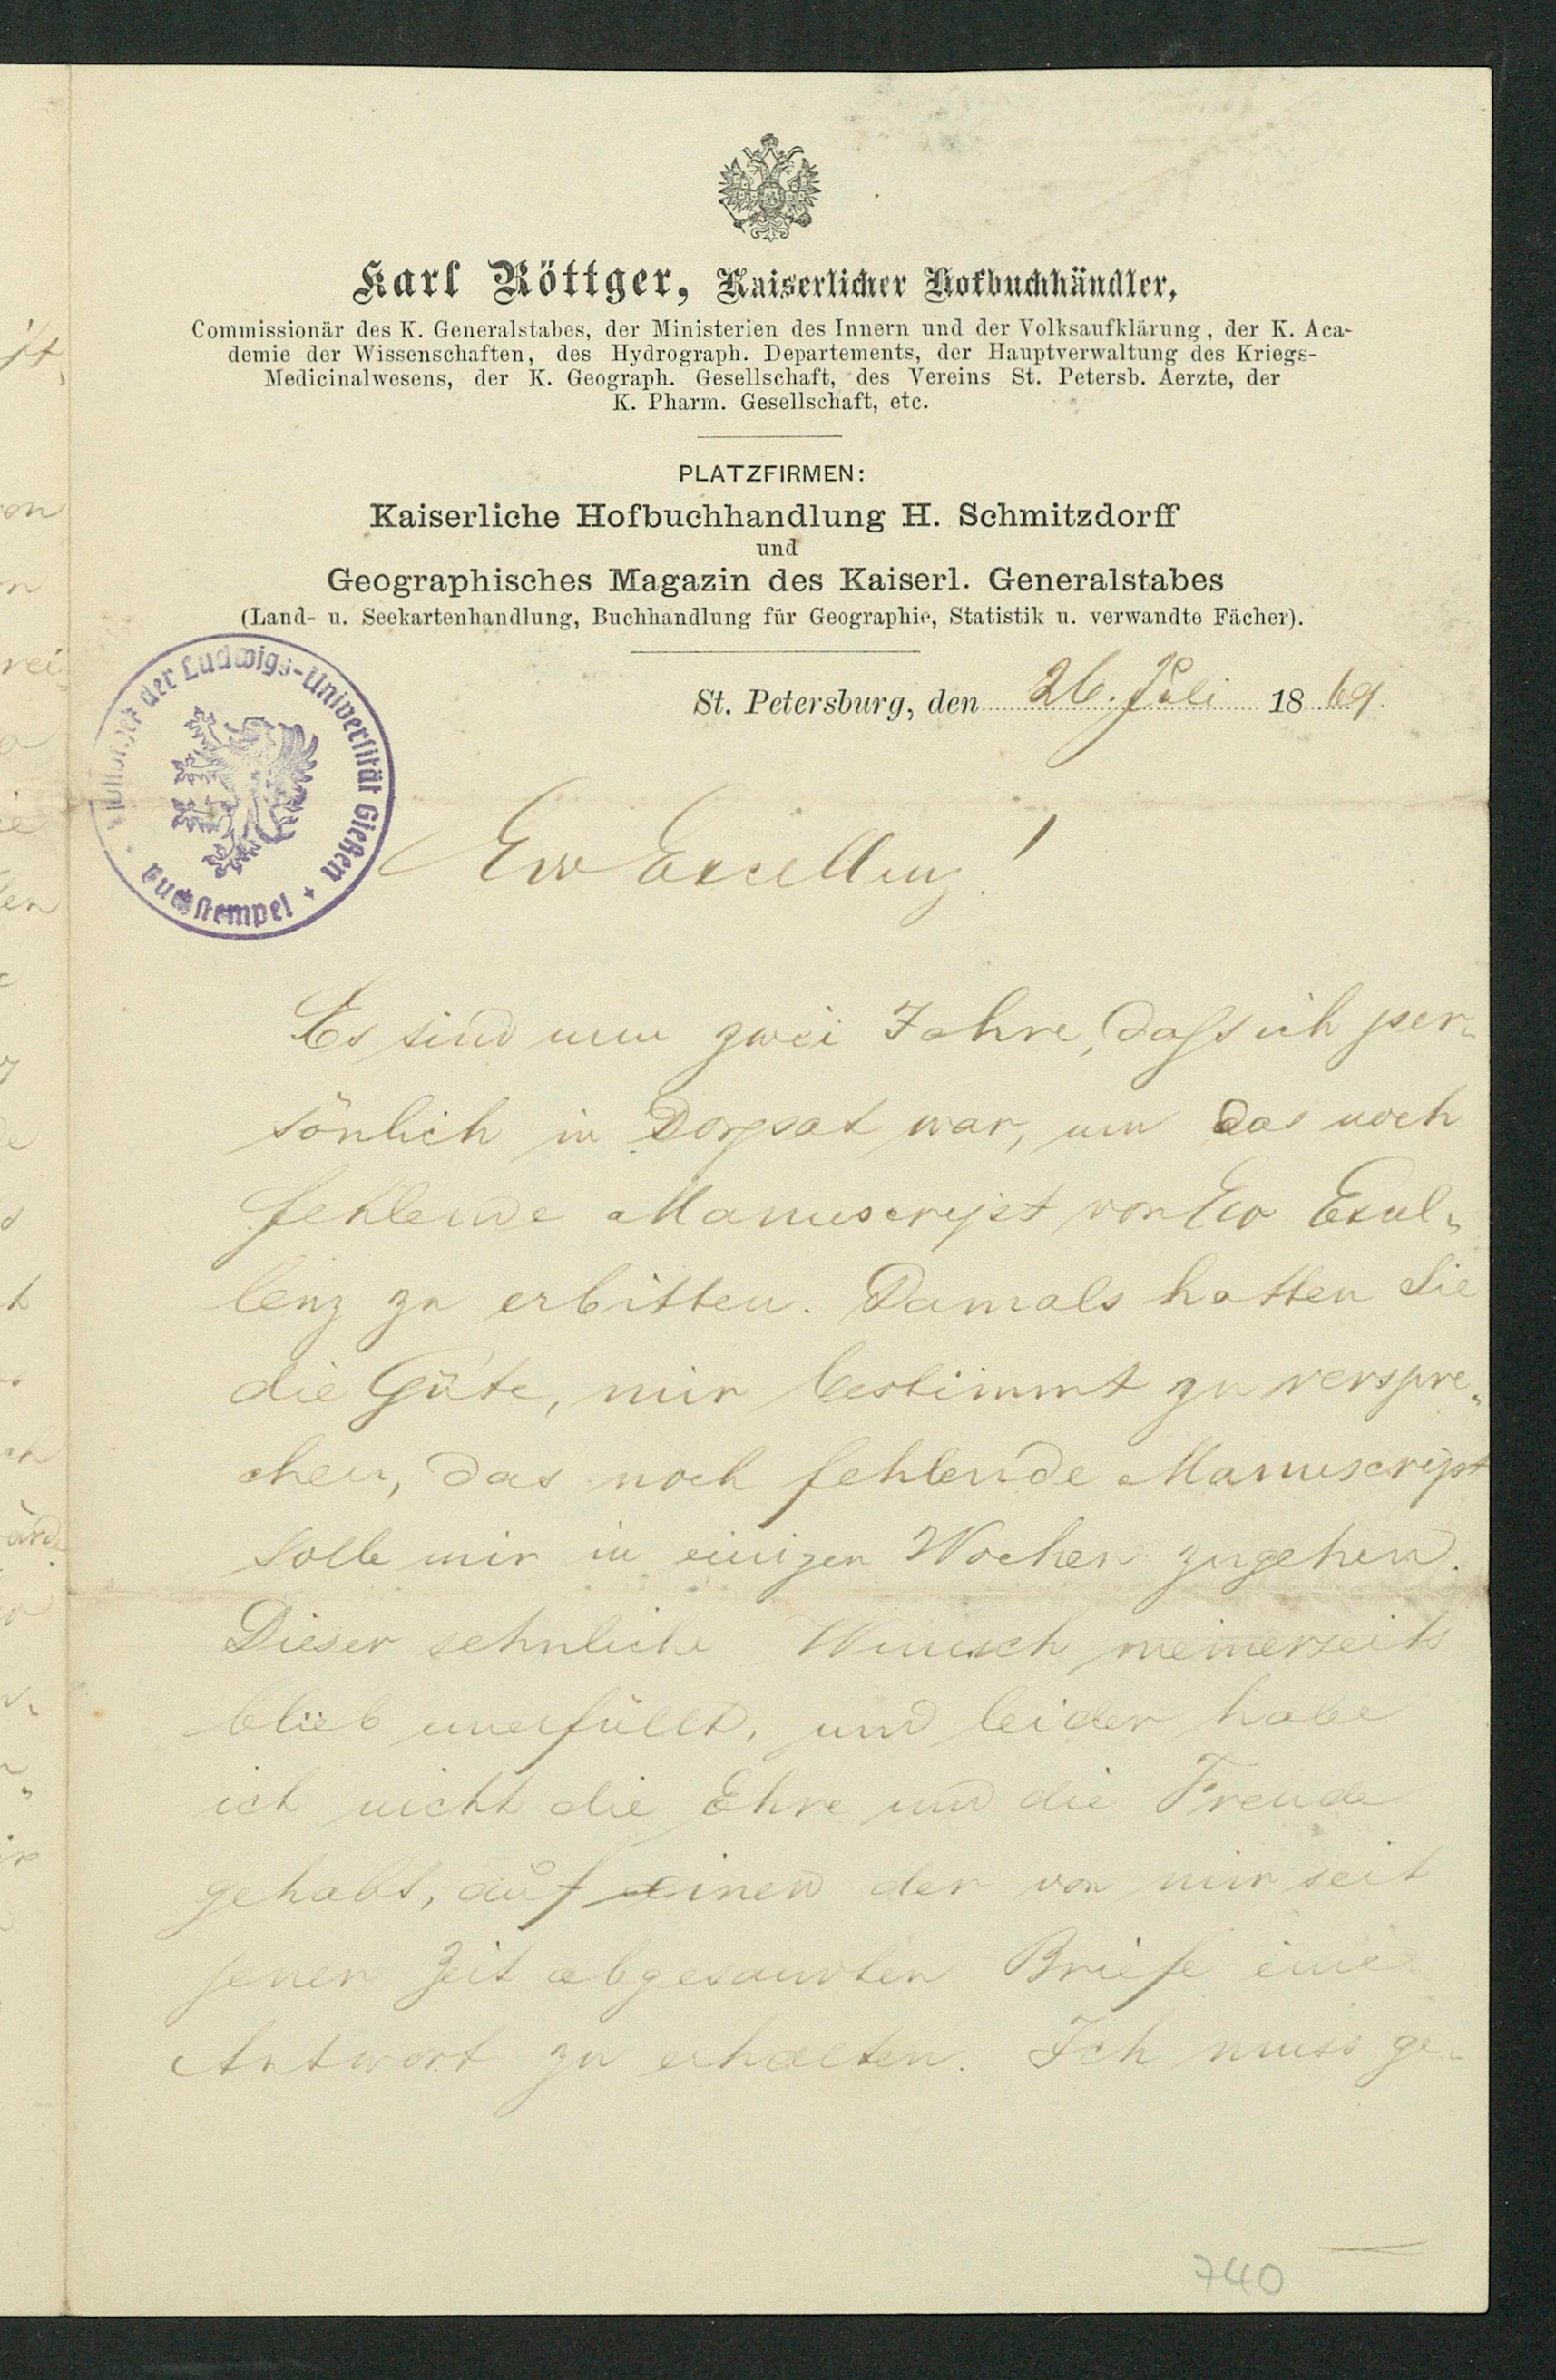 Karl Röttger, Kaiserlicher Hofbuchhändler,
Commissionär des K. Generalstabes, der Ministerien des Innern und der Volksaufklärung, der K. Aca-
demie der Wissenschaften, des Hydrograph. Departements, der Hauptverwaltung des Kriegs-
Medicinalwesens, der K. Geograph. Gesellschaft, des Vereins St. Petersb. Aerzte, der
K. Pharm. Gesellschaft, etc.
PLATZFIRMEN:
Kaiserliche Hofbuchhandlung H. Schmitzdorff
und
Geographisches Magazin des Kaiserl. Generalstabes
(Land- u. Seekartenhandlung, Buchhandlung für Geographie, Statistik u. verwandte Fächer).
der Ludwigs-Universität Gießen + Buchstempel
St. Petersburg, den 26. Juli 1869.
Ew Excellenz!
Es sind nun zwei Jahre, dass ich per-
sönlich in Dorpat war, um das noch
fehlende Manuscript von Ew Excel-
lenz zu erbitten. Damals hatten Sie
die Güte, mir bestimmt zu verspre-
chen, das noch fehlende Manuscript
solle mir in einigen Wochen zugehen.
Dieser sehnliche Wunsch meinerseits
blieb unerfüllt, und leider habe
ich nicht die Ehre und die Freude
gehabt, auf einen der von mir seit
jener Zeit abgesandten Briefe eine
Antwort zu erhalten. Ich muss ge-
740